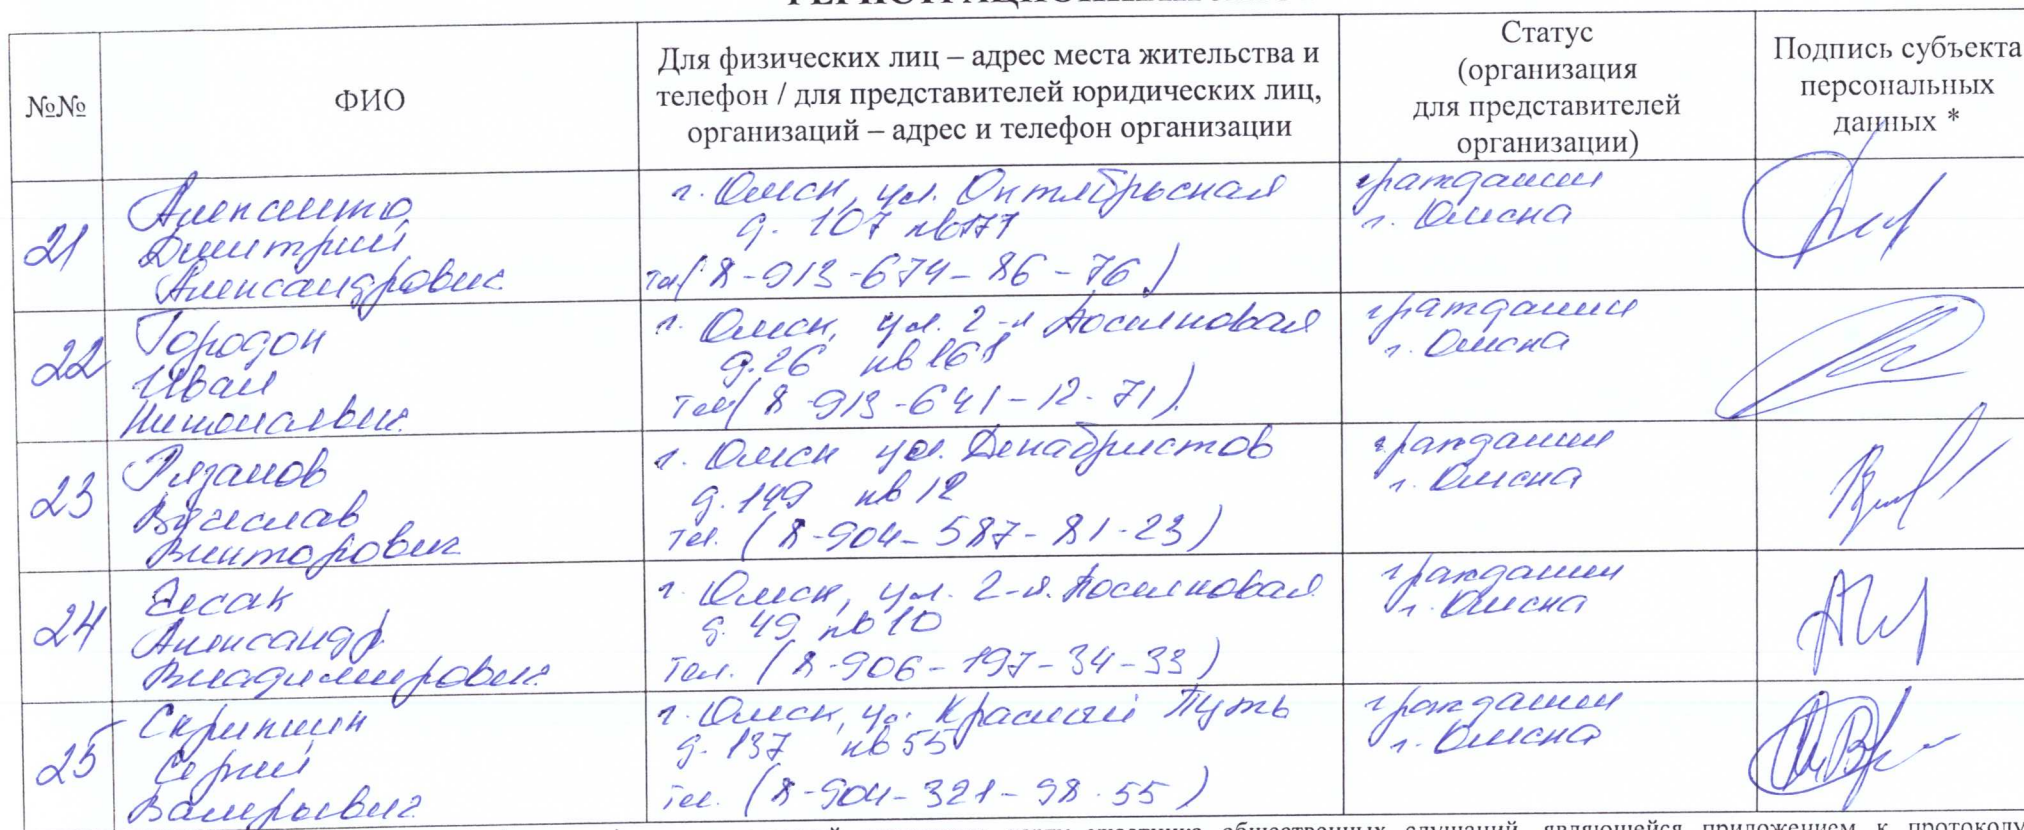 №№
ФИО
Для физических лиц – адрес места жительства и
телефон / для представителей юридических лиц,
организаций – адрес и телефон организации
Статус
(организация
для представителей
организации)
Подпись субъекта
персональных
данных *
21
Дмитрий
Александрович
г. Омск, ул. Октябрьская
д. 107 кв 177
тел( 8-913-674-86-76 )
гражданин
г. Омска
22
Городон
Иван
г. Омск, ул. 2-я Поселковая
д. 26 кв 168
тел( 8-913-641-12-71)
гражданин
г. Омска
23
Рязанов
Вячеслав
Викторович
г. Омск ул. Декабристов
д. 149 кв 12
тел. (8-904-587-81-23)
гражданин
г. Омска
24
Александр
Владимирович
г. Омск, ул. 2-я Поселковая
д. 49 кв 10
тел. (8-906-197-34-33)
гражданин
г. Омска
25
Скрипкин
Сергей
Валерьевич
г. Омск, ул. Красный Путь
д. 137 кв 55
тел. (8-904-321-98-55)
гражданин
г. Омска
участника общественных слушаний, являющейся приложением к протоколу